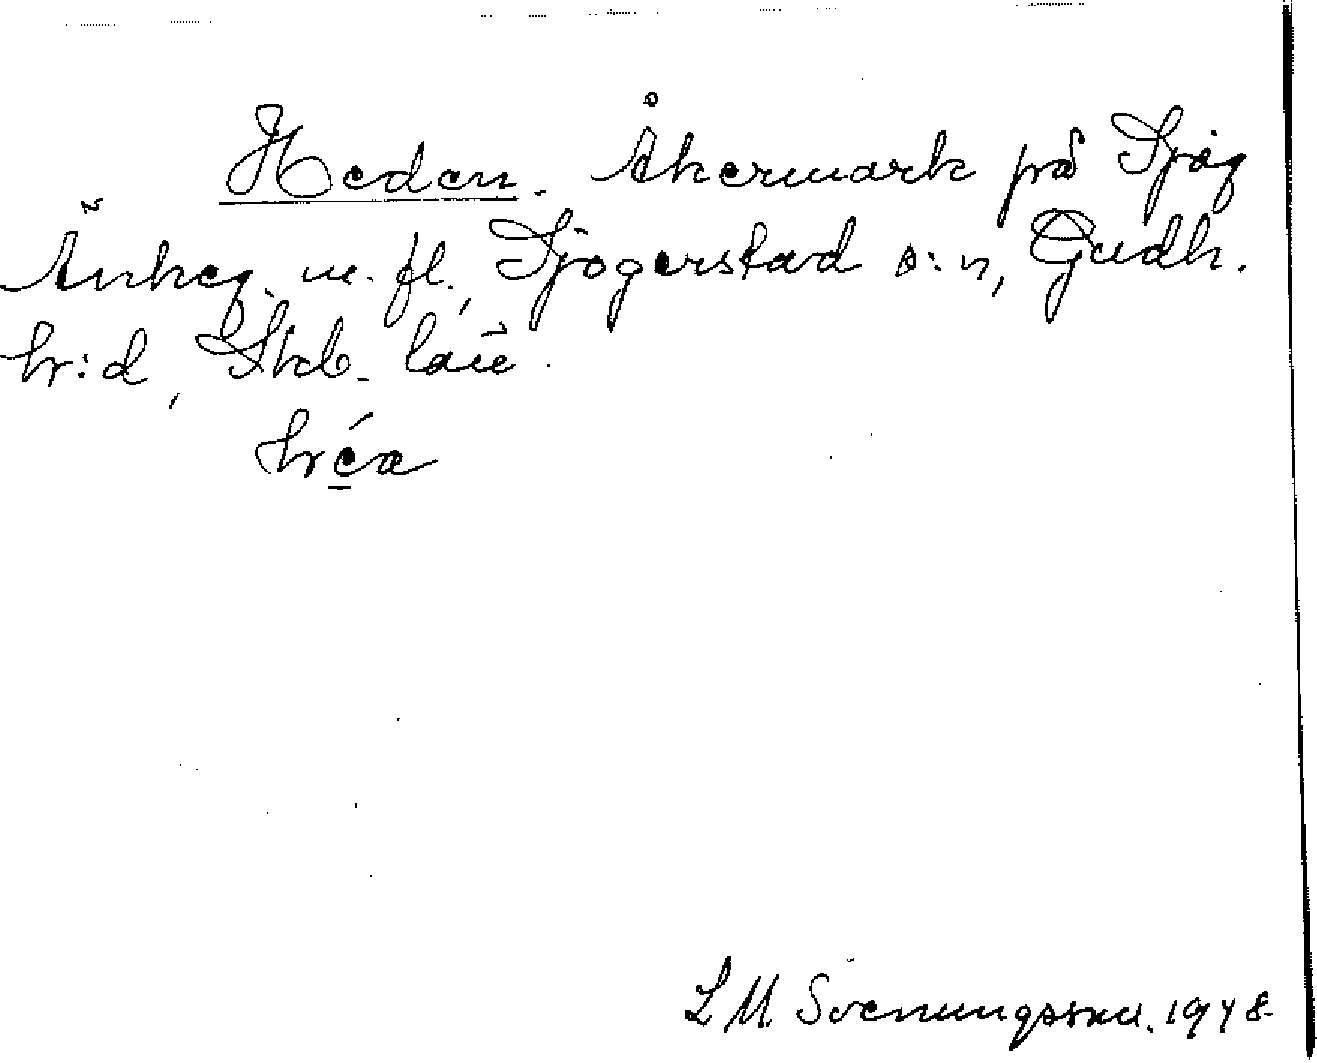 Hedan. Åkermark på Sjög
Änkeg. m. fl., Sjogerstad s:n, Gudh.
hr:d, Skb. län.
héa
L M. Svenungsson. 1948